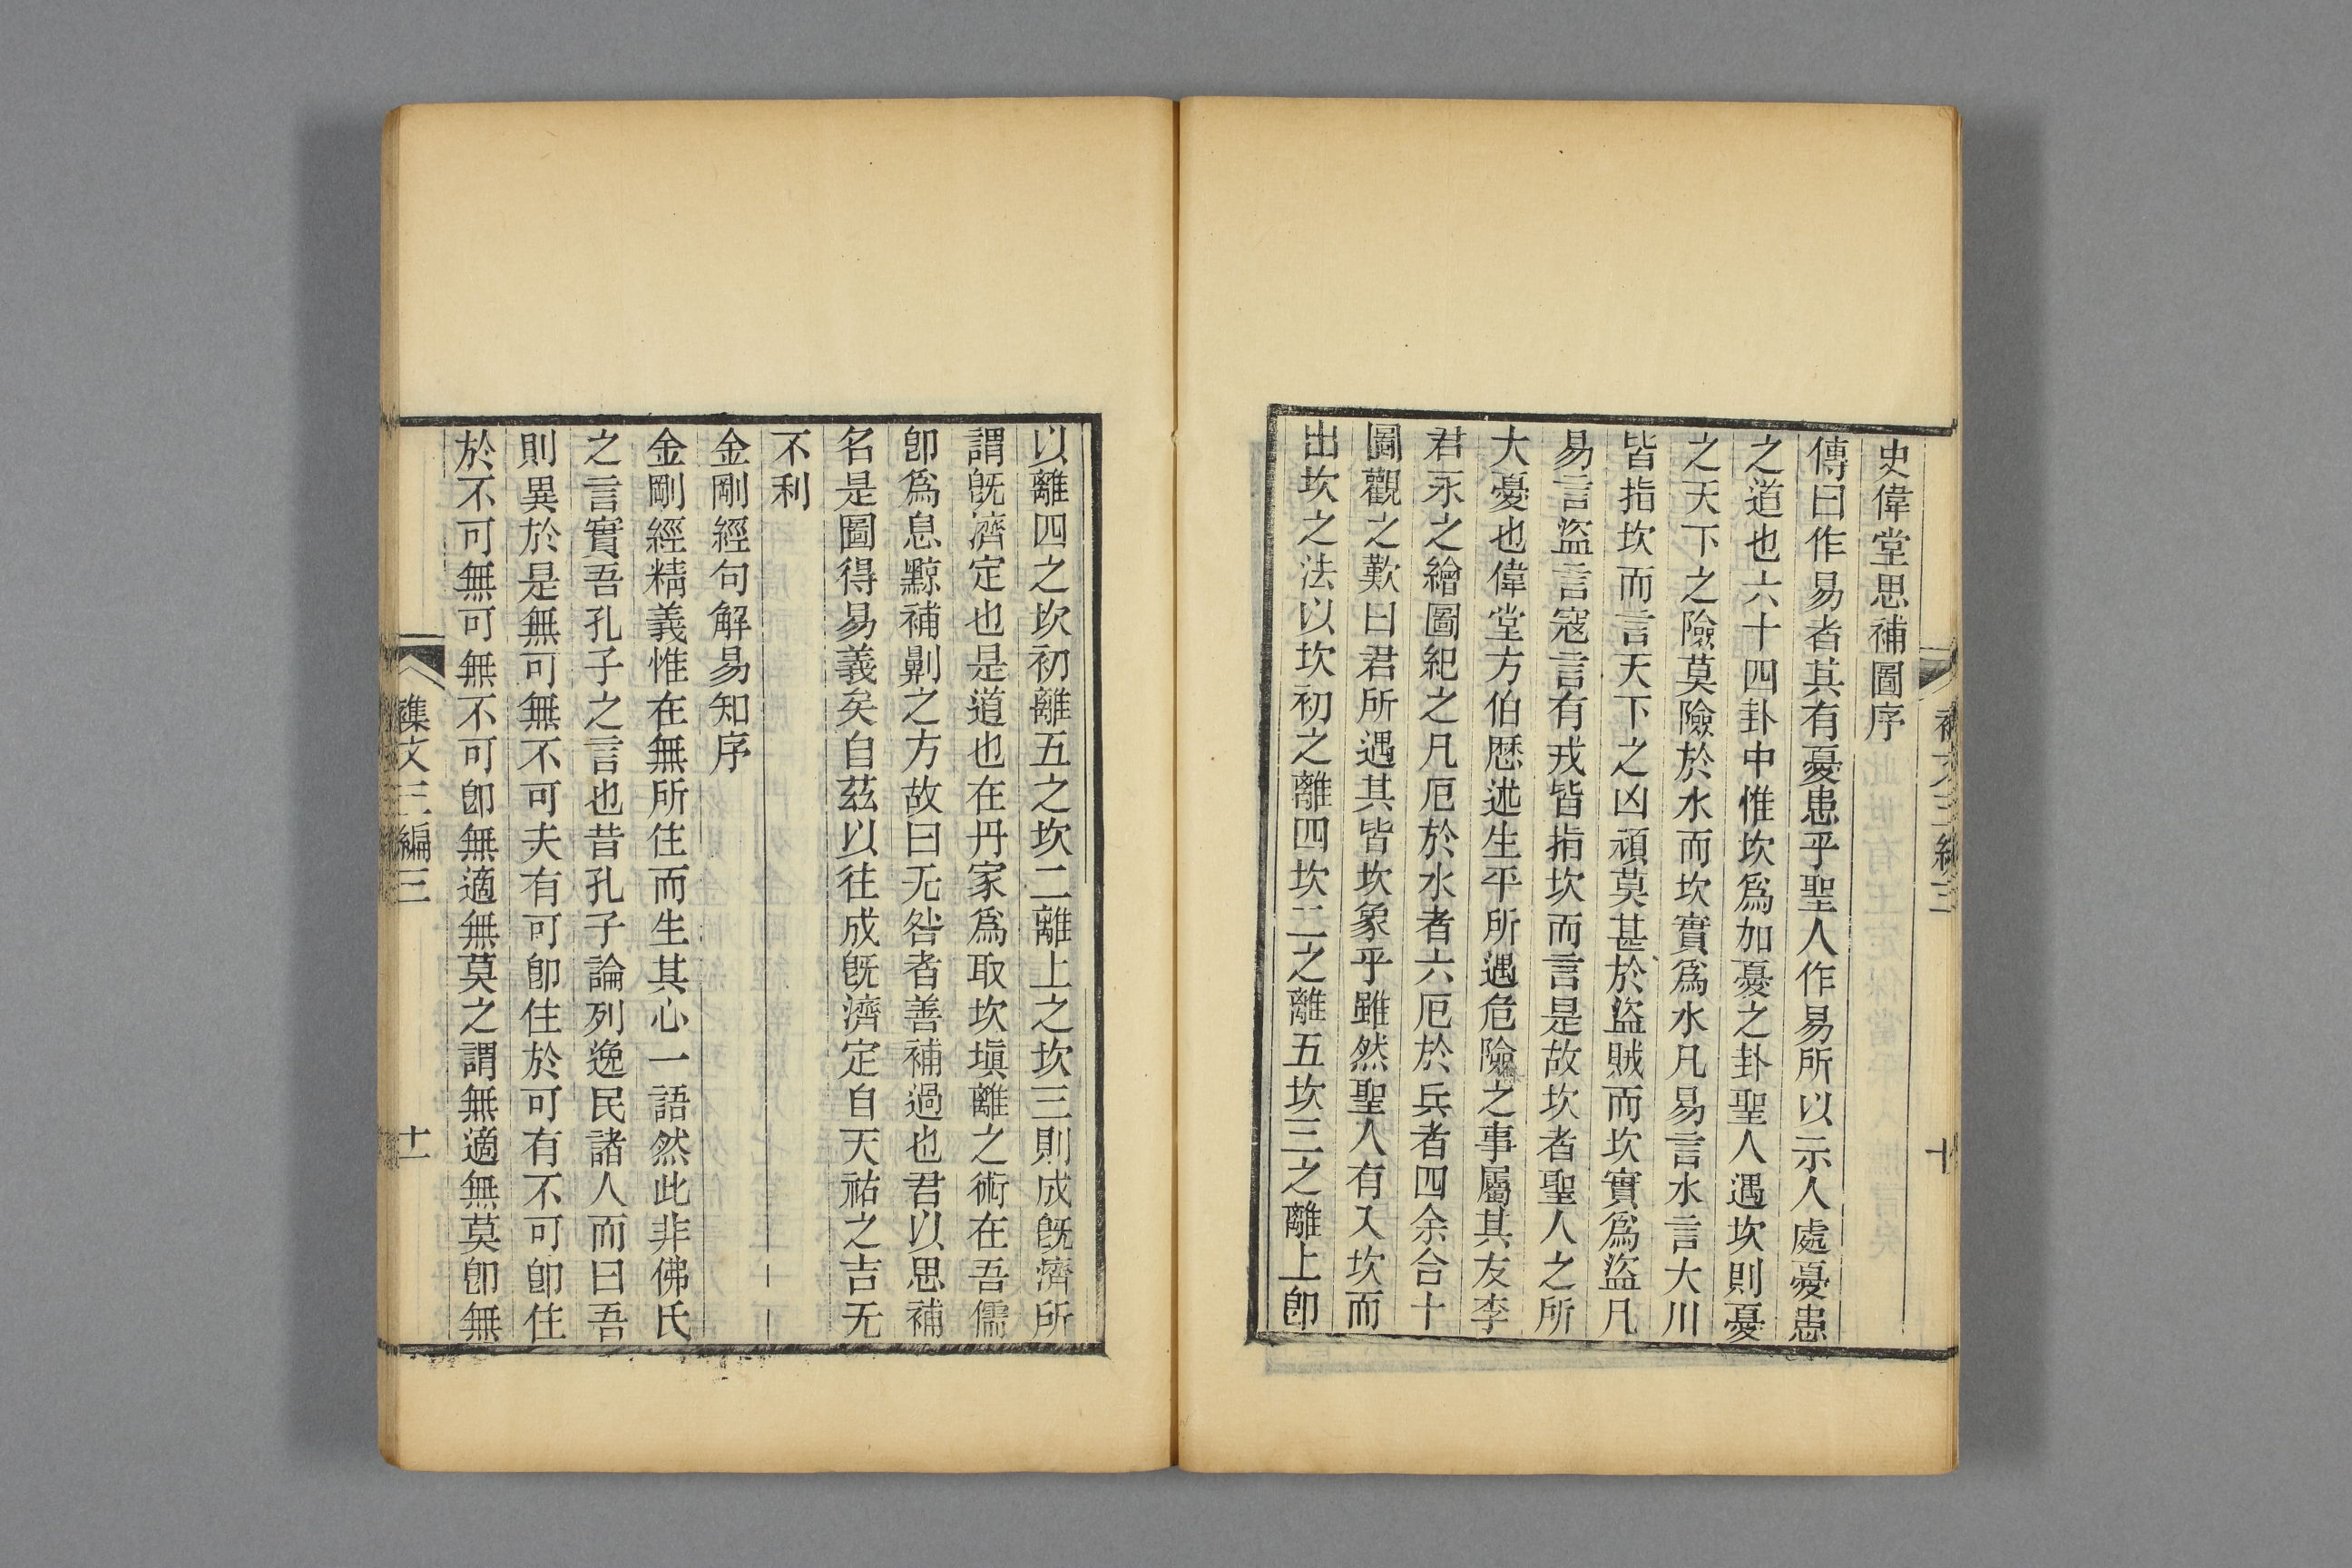 史偉堂思補圖序
傳曰作易者其有憂患乎聖人作易所以示人處憂患
之道也六十四卦中惟坎爲加憂之卦聖人遇坎則憂
之天下之險莫險於水而坎實爲水凡易言水言大川
皆指坎而言天下之凶頑莫甚於盜賊而坎實爲盜凡
易言盜言寇言有戎皆指坎而言是故坎者聖人之所
大憂也偉堂方伯厯述生平所遇危險之事屬其友李
君永之繪圖紀之凡厄於水者六厄於兵者四余合十
圖觀之歎曰君所遇其皆坎象乎雖然聖人有入坎而
出坎之法以坎初之離四坎二之離五坎三之離上卽
以離四之坎初離五之坎二離上之坎三則成旣濟所
謂旣濟定也是道也在丹家爲取坎塡離之術在吾儒
卽爲息黥補劓之方故曰无咎者善補過也君以思補
名是圖得易義矣自茲以往成旣濟定自天祐之吉无
不利
金剛經句解易知序
金剛經精義惟在無所住而生其心一語然此非佛氏
之言實吾孔子之言也昔孔子論列逸民諸人而曰吾
則異於是無可無不可夫有可卽住於可有不可卽住
於不可無可無不可卽無適無莫之謂無適無莫卽無
襍文三編三
十一